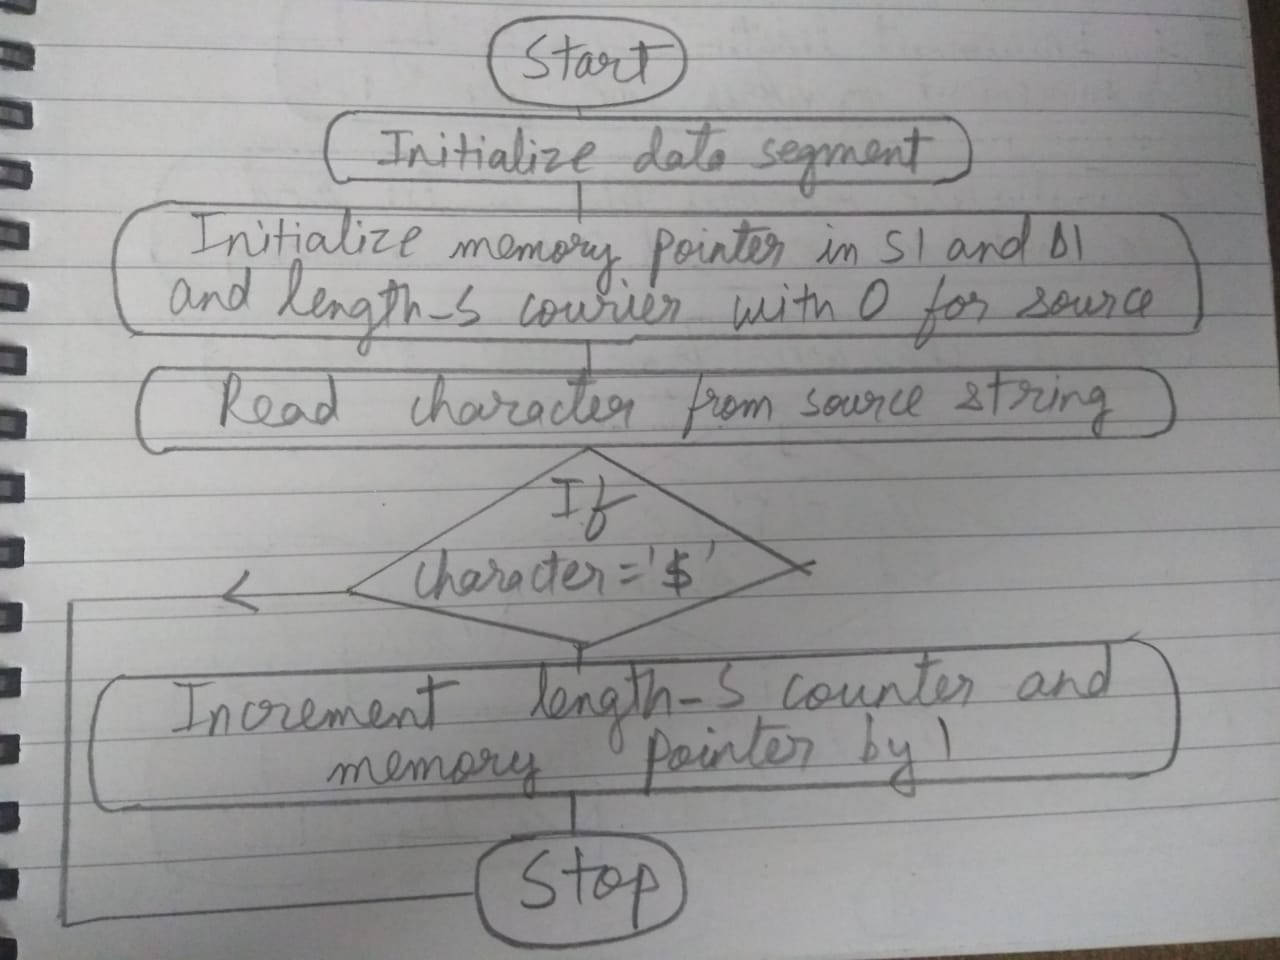 Start
Initialize data segment
Initialize memory pointer in SI and DI
and length-S courier with 0 for source
Read character from source string
If
character = '$'
Increment length-S counter and
memory pointer by 1
Stop